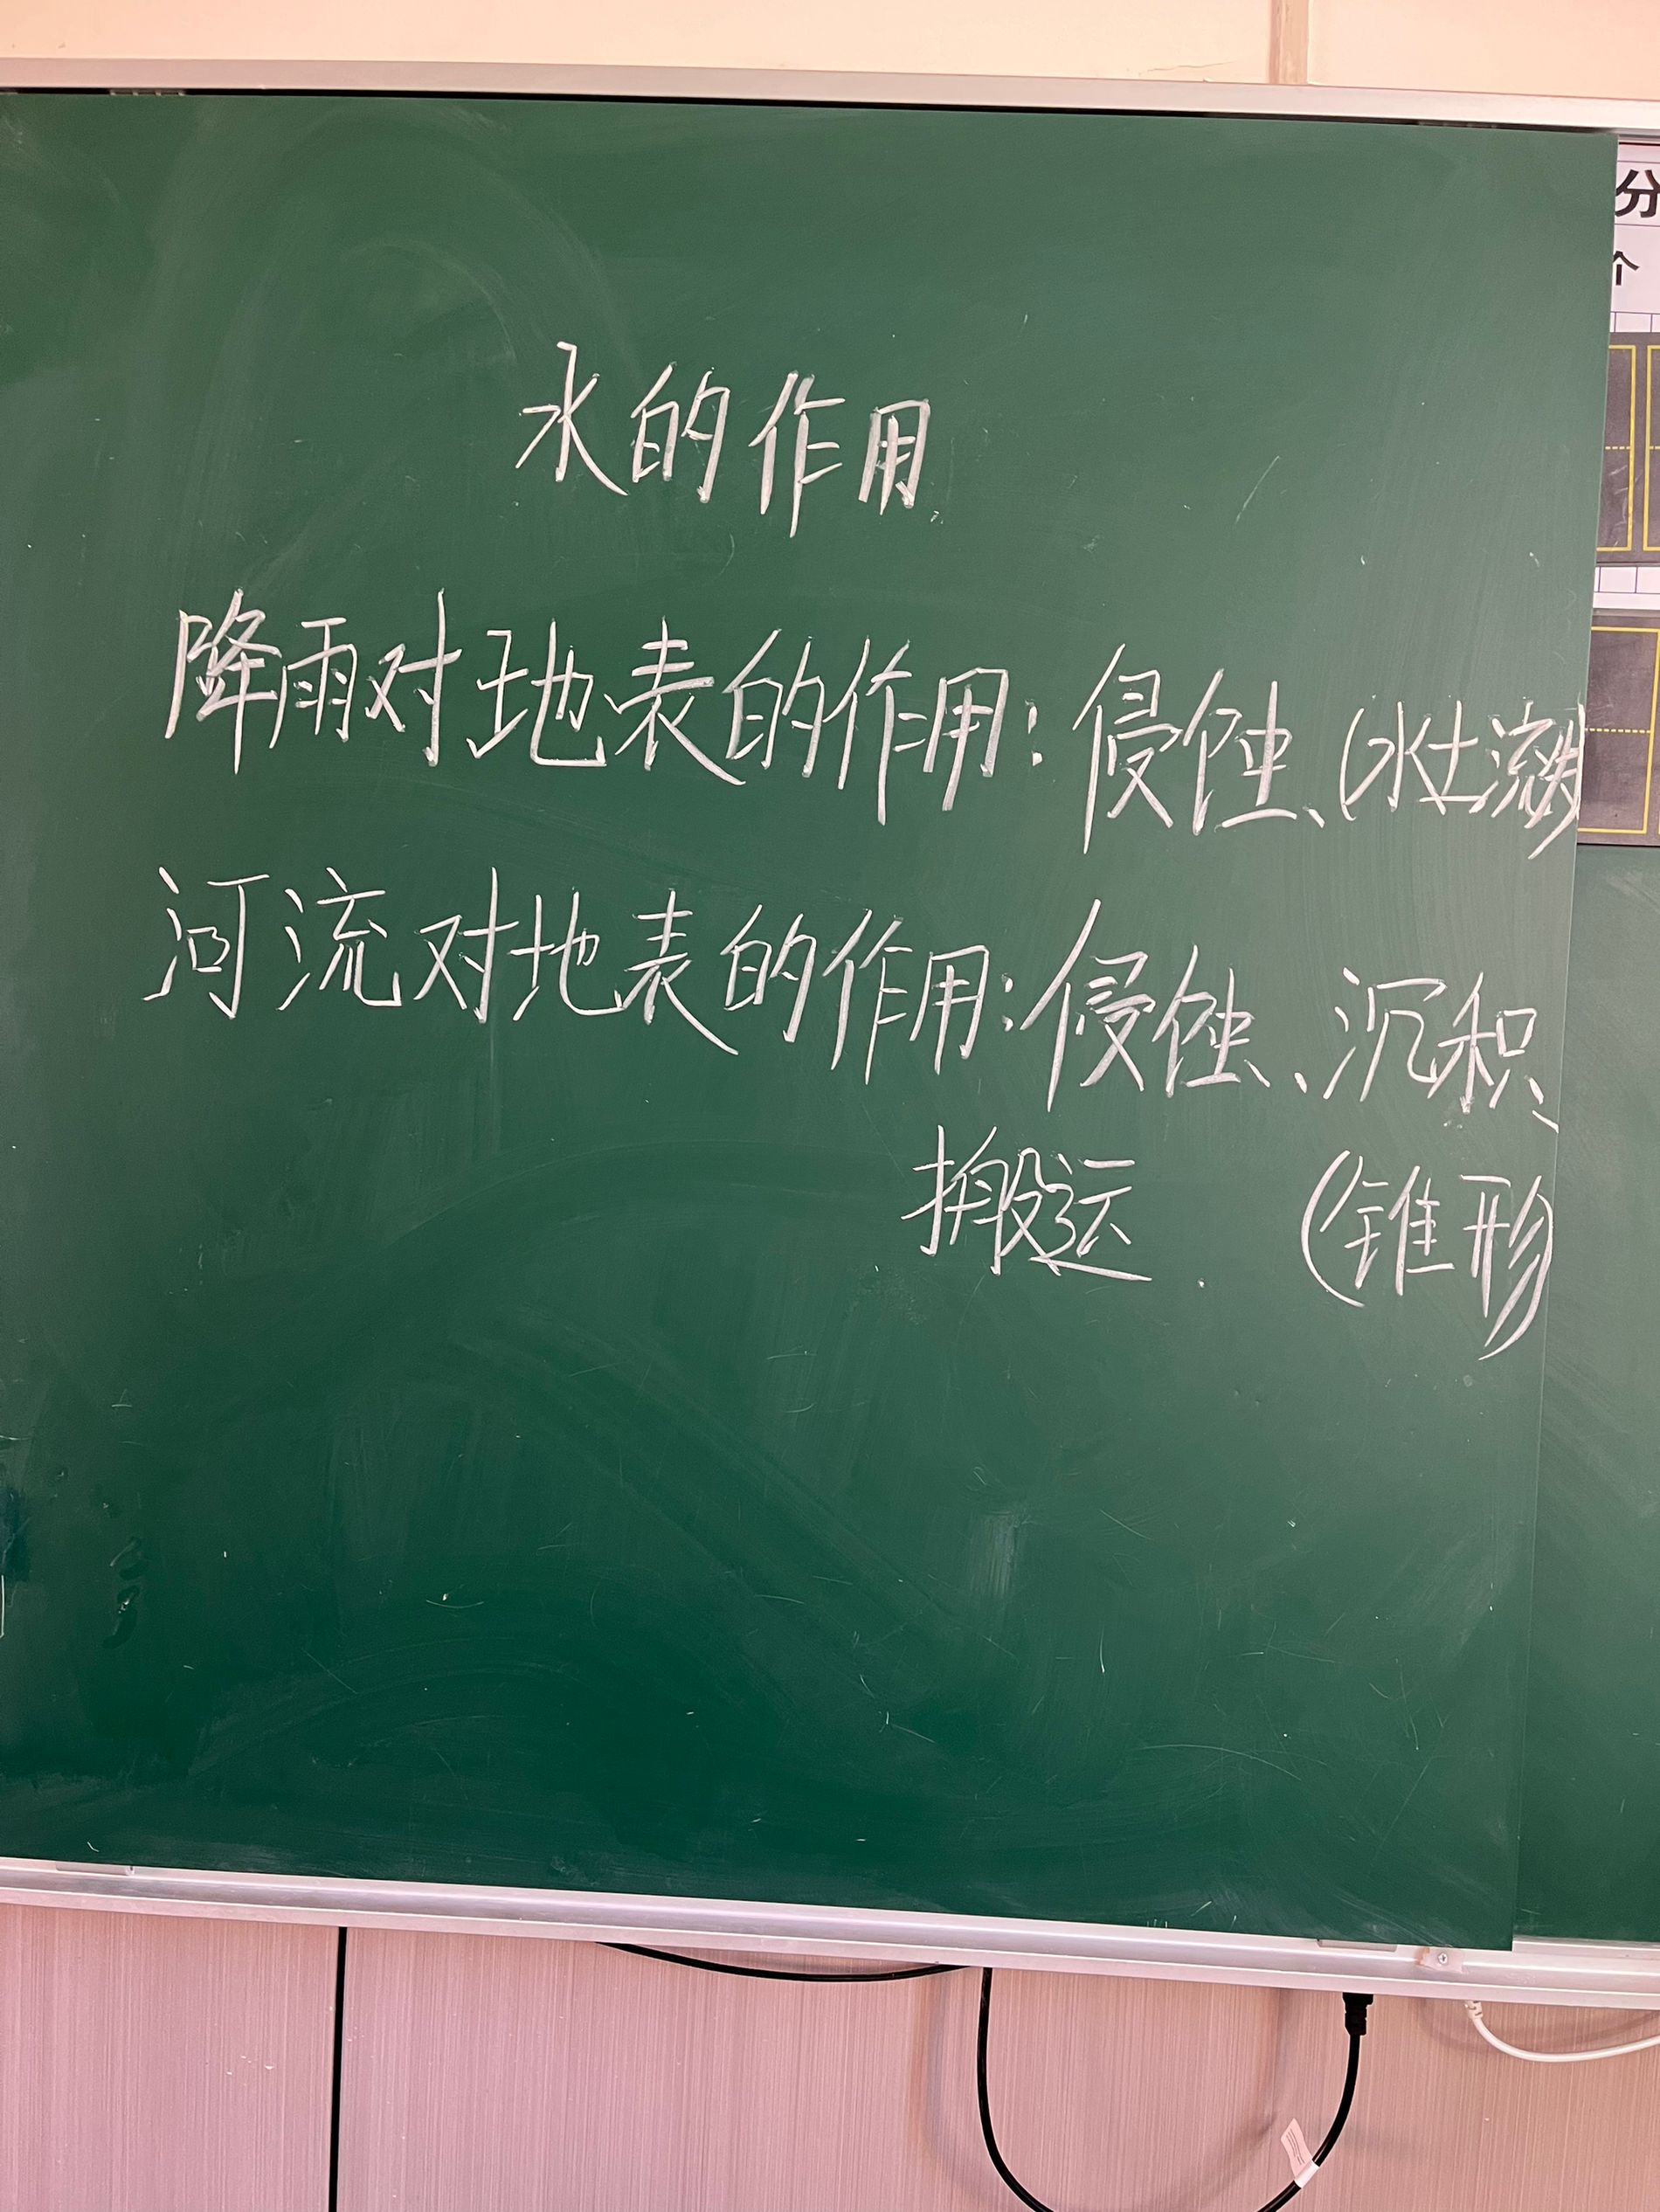 水的作用
降雨对地表的作用：侵蚀、(水土流失)
河流对地表的作用：侵蚀、沉积、
搬运. (锥形)
分
个